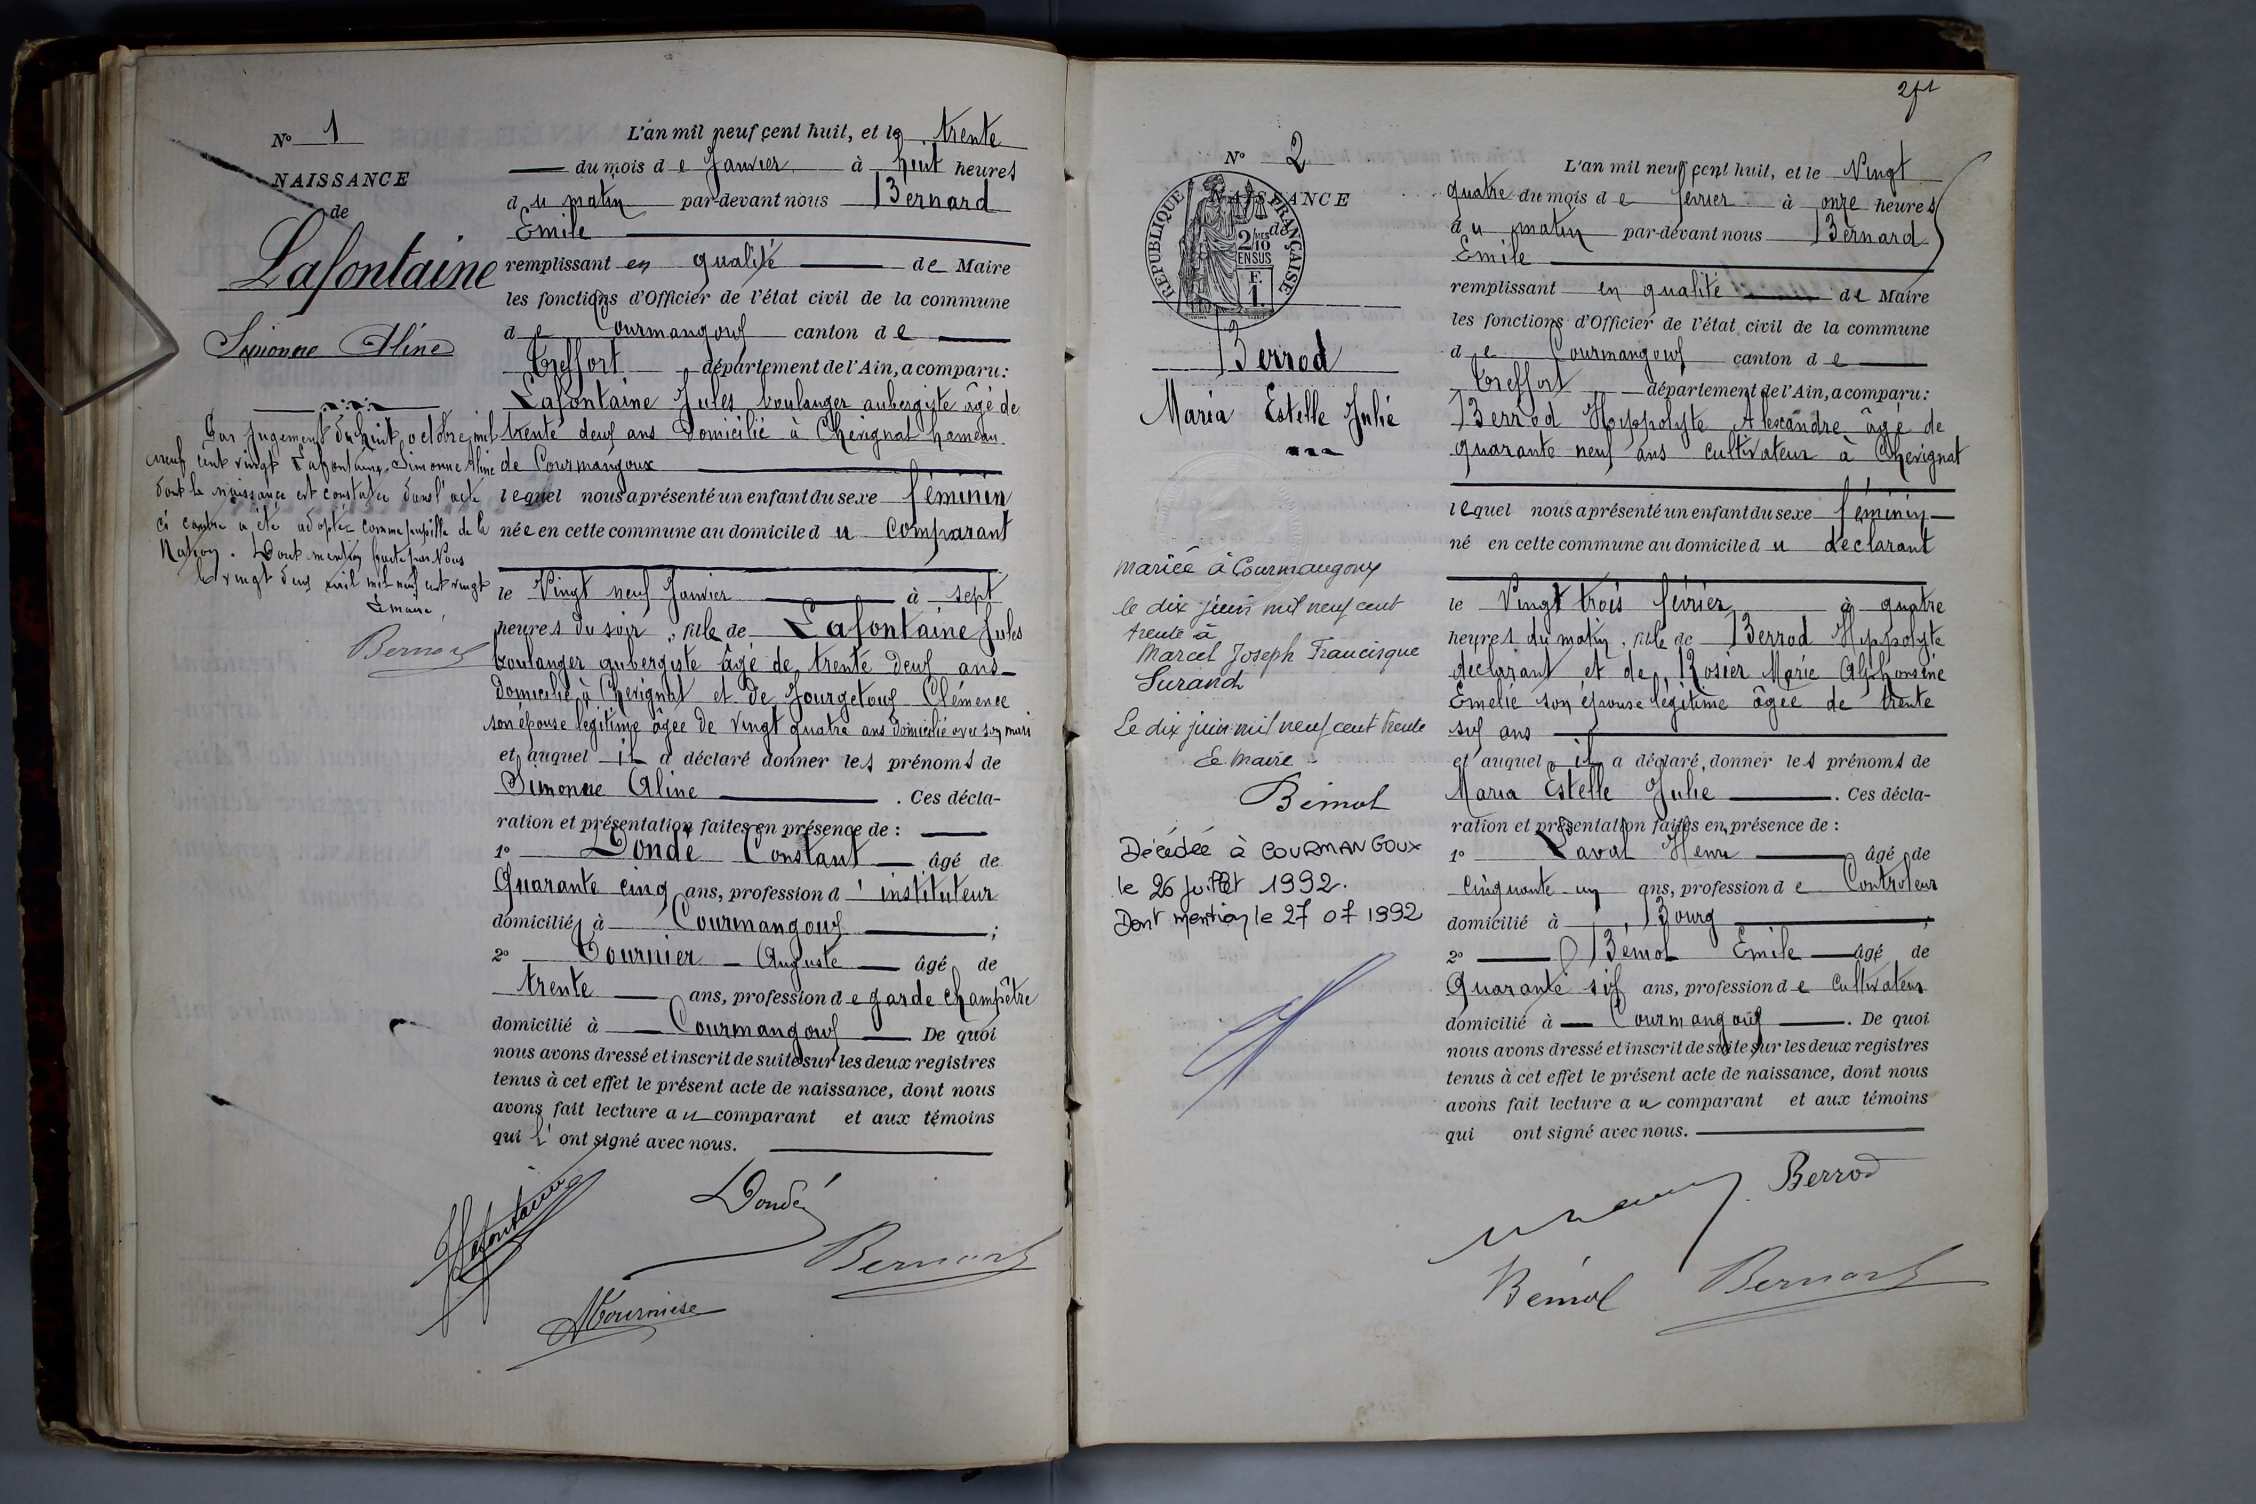 N° 1
NAISSANCE
de
Lafontaine
Simonne Aline
Par jugement du huit octobre mil
neuf cent vingt Lafontaine Simonne Aline
dont la naissance est constatée dans l'acte
ci contre a été adoptée comme pupille de la
Nation. Dont mention faite par Nous
le vingt deux mil neuf cent vingt
Le maire,
Bernard
L'an mil neuf cent huit, et le trente
du mois de Janvier à huit heures
du matin par-devant nous Bernard
Emile
remplissant en qualité de Maire
les fonctions d'Officier de l'état civil de la commune
de Courmangoux canton de
Treffort département de l'Ain, a comparu:
Lafontaine Jules boulanger aubergiste âgé de
trente deux ans domicilié à Chevignat hameau
de Courmangoux
lequel nous a présenté un enfant du sexe féminin
née en cette commune au domicile du comparant
le Vingt neuf Janvier à sept
heures du soir, fille de Lafontaine Jules
boulanger aubergiste âgé de trente deux ans
domicilié à Chevignat et de Jourgetoux Clémence
son épouse légitime âgée de vingt quatre ans domicilié avec son mari
et auquel il a déclaré donner les prénoms de
Simonne Aline . Ces décla-
ration et présentation faites en présence de :
1° Dondé Constant âgé de
Quarante cinq ans, profession d'instituteur
domicilié à Courmangoux ;
2° Tournier Auguste âgé de
trente ans, profession de garde champêtre
domicilié à Courmangoux De quoi
nous avons dressé et inscrit de suite sur les deux registres
tenus à cet effet le présent acte de naissance, dont nous
avons fait lecture au comparant et aux témoins
qui l'ont signé avec nous.
Lafontaine
Dondé
Bernard
Tournier
N° 2
NAISSANCE
de
REPUBLIQUE FRANÇAISE
2/10
EN SUS
F.
1.
Berrod
Maria Estelle Julie
mariée à Courmangoux
le dix juin mil neuf cent
trente à
Marcel Joseph Francisque
Surand
Le dix juin mil neuf cent trente
Le Maire
Bémol
Décédée à COURMANGOUX
le 26 Juillet 1992.
Dont mention le 27 07 1992
L'an mil neuf cent huit, et le Vingt
quatre du mois de février à onze heures
du matin par-devant nous Bernard
Emile
remplissant en qualité de Maire
les fonctions d'Officier de l'état civil de la commune
de Courmangoux canton de
Treffort département de l'Ain, a comparu:
Berrod Hyppolyte Alexandre âgé de
quarante neuf ans cultivateur à Chevignat
lequel nous a présenté un enfant du sexe féminin
né en cette commune au domicile du déclarant
le Vingt trois février à quatre
heures du matin, fille de Berrod Hyppolyte
déclarant et de Rosier Marie Alphonsine
Emelie son épouse légitime âgée de trente
six ans
et auquel il a déclaré donner les prénoms de
Maria Estelle Julie . Ces décla-
ration et présentation faites en présence de :
1° Laval Henri âgé de
cinquante un ans, profession de Controleur
domicilié à Bourg ;
2° Bémol Emile âgé de
Quarante six ans, profession de cultivateur
domicilié à Courmangoux . De quoi
nous avons dressé et inscrit de suite sur les deux registres
tenus à cet effet le présent acte de naissance, dont nous
avons fait lecture au comparant et aux témoins
qui ont signé avec nous.
Berrod
Bémol
Bernard